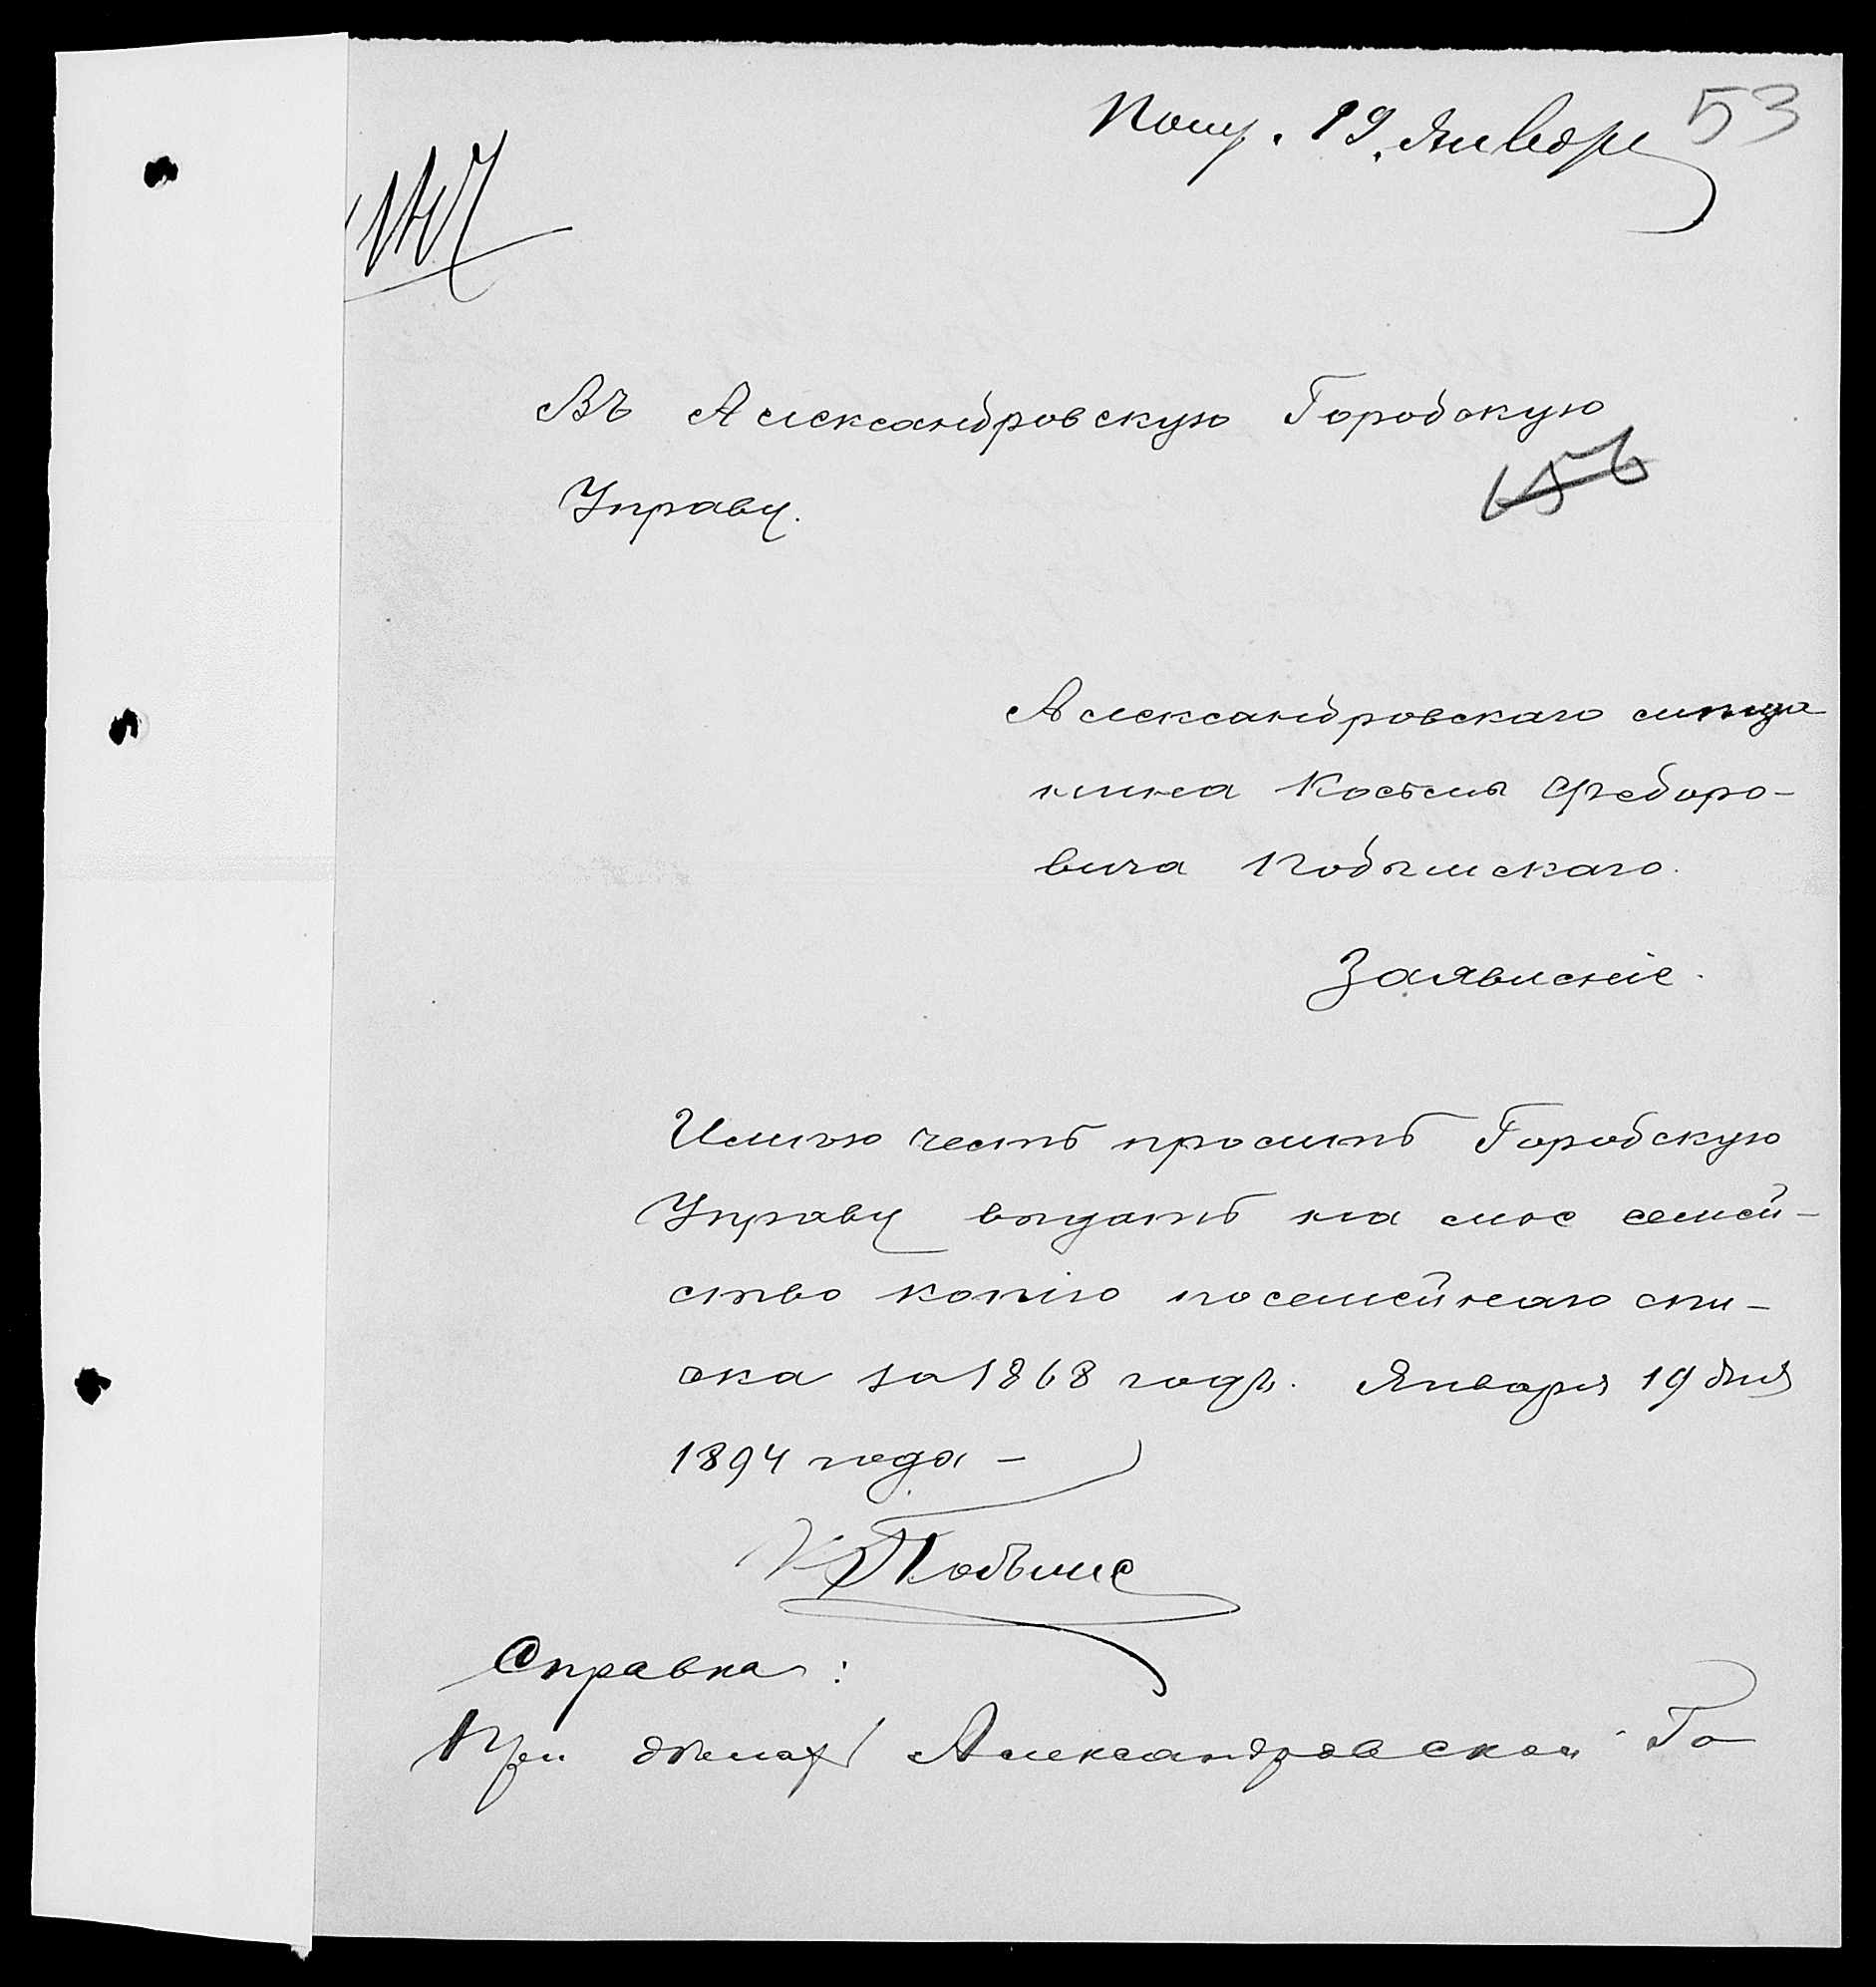 Полу. 19. Января 53
Въ Александровскую Городскую
Управу.
656
Александровскаго мѣща
нина Косьмы Федоро-
вича Побѣмскаго.
Заявленіе.
Имѣю честь просить Городскую
Управу выдать на мое семей-
ство копію посемейнаго спи-
ска за 1868 годъ. Января 19 дня
1894 года -
Справка:
При дѣлахъ Александровской Го